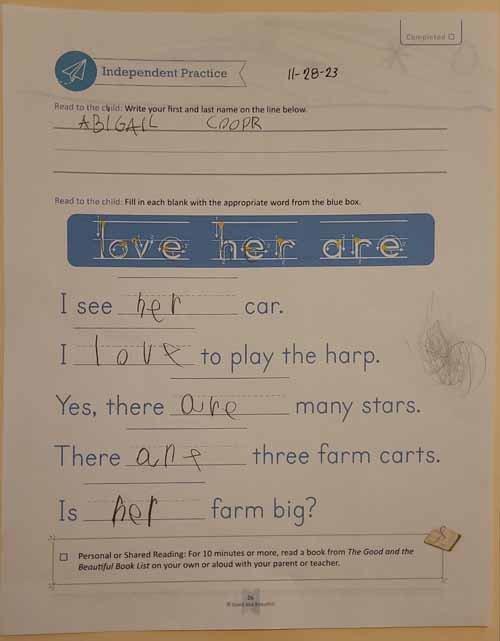 Completed
Independent Practice 11-28-23
Read to the child: Write your first and last name on the line below.
ABIGAIL COOPR
Read to the child: Fill in each blank with the appropriate word from the blue box.
love her are
I see her car.
I love to play the harp.
Yes, there are many stars.
There are three farm carts.
Is her farm big?
Personal or Shared Reading: For 10 minutes or more, read a book from The Good and the
Beautiful Book List on your own or aloud with your parent or teacher.
© Good and Beautiful